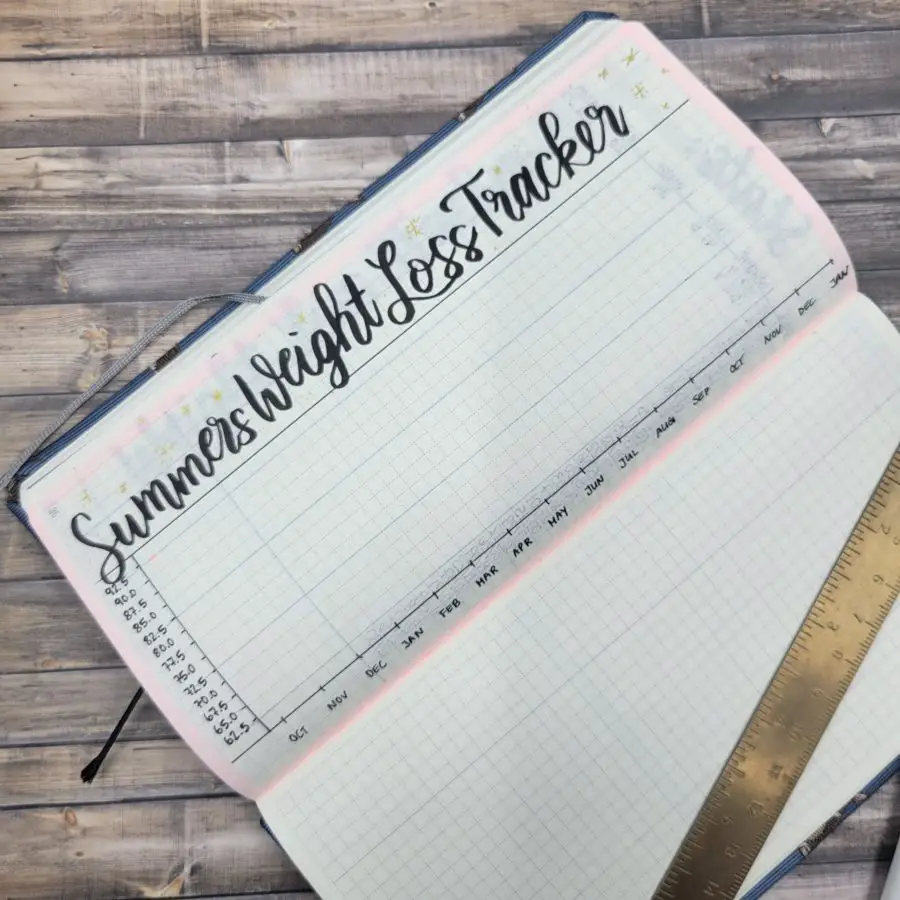 Summers Weight Loss Tracker
92.5
90.0
87.5
85.0
82.5
80.0
77.5
75.0
72.5
70.0
67.5
65.0
62.5
OCT NOV DEC JAN FEB MAR APR MAY JUN JUL AUG SEP OCT NOV DEC JAN